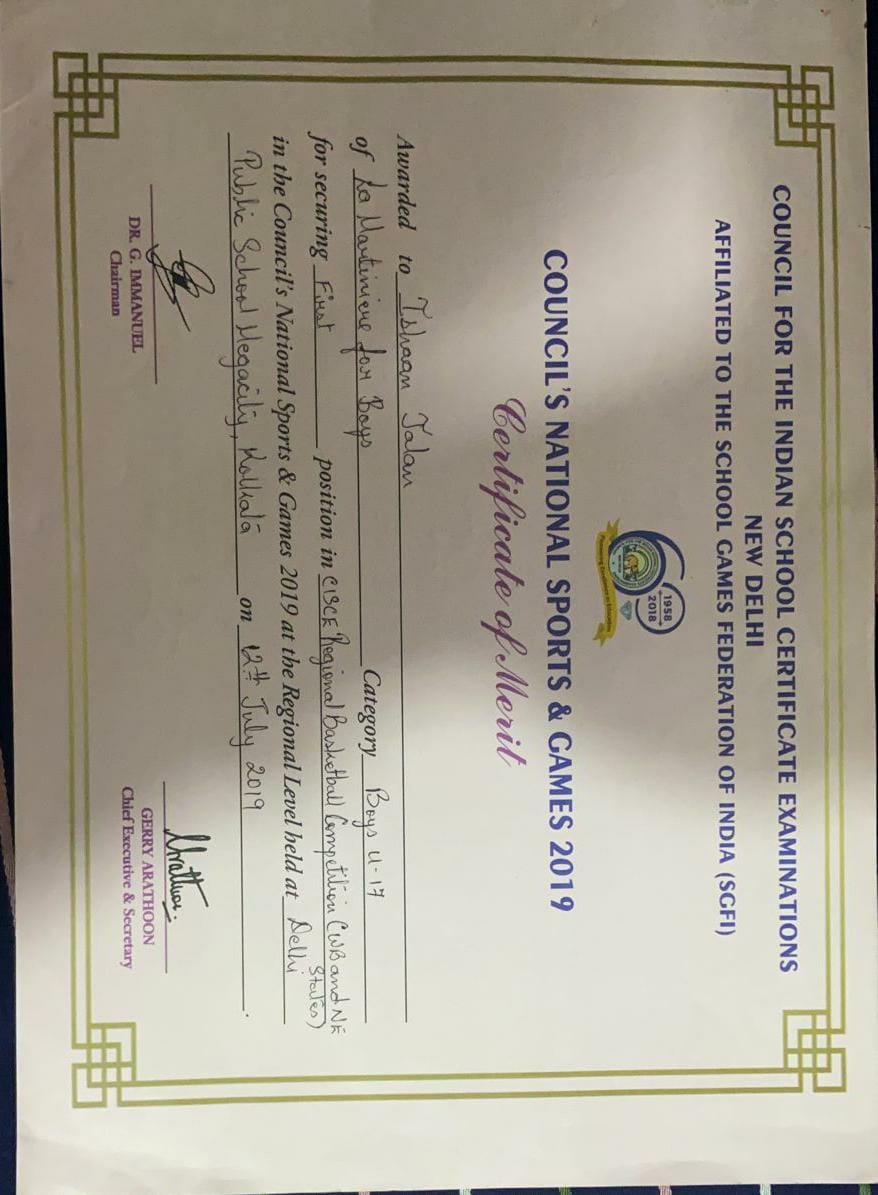 COUNCIL FOR THE INDIAN SCHOOL CERTIFICATE EXAMINATIONS
NEW DELHI
AFFILIATED TO THE SCHOOL GAMES FEDERATION OF INDIA (SGFI)
1958
2018
Pioneering Excellence in Education
COUNCIL'S NATIONAL SPORTS & GAMES 2019
Certificate of Merit
Awarded to Ishaan Jalan
of La Martiniere for Boys Category Boys U-17
for securing First position in CISCE Regional Basketball Competition (WB and NE
States)
in the Council's National Sports & Games 2019 at the Regional Level held at Delhi
Public School Megacity, Kolkata on 12th July 2019.
DR. G. IMMANUEL
Chairman
GERRY ARATHOON
Chief Executive & Secretary